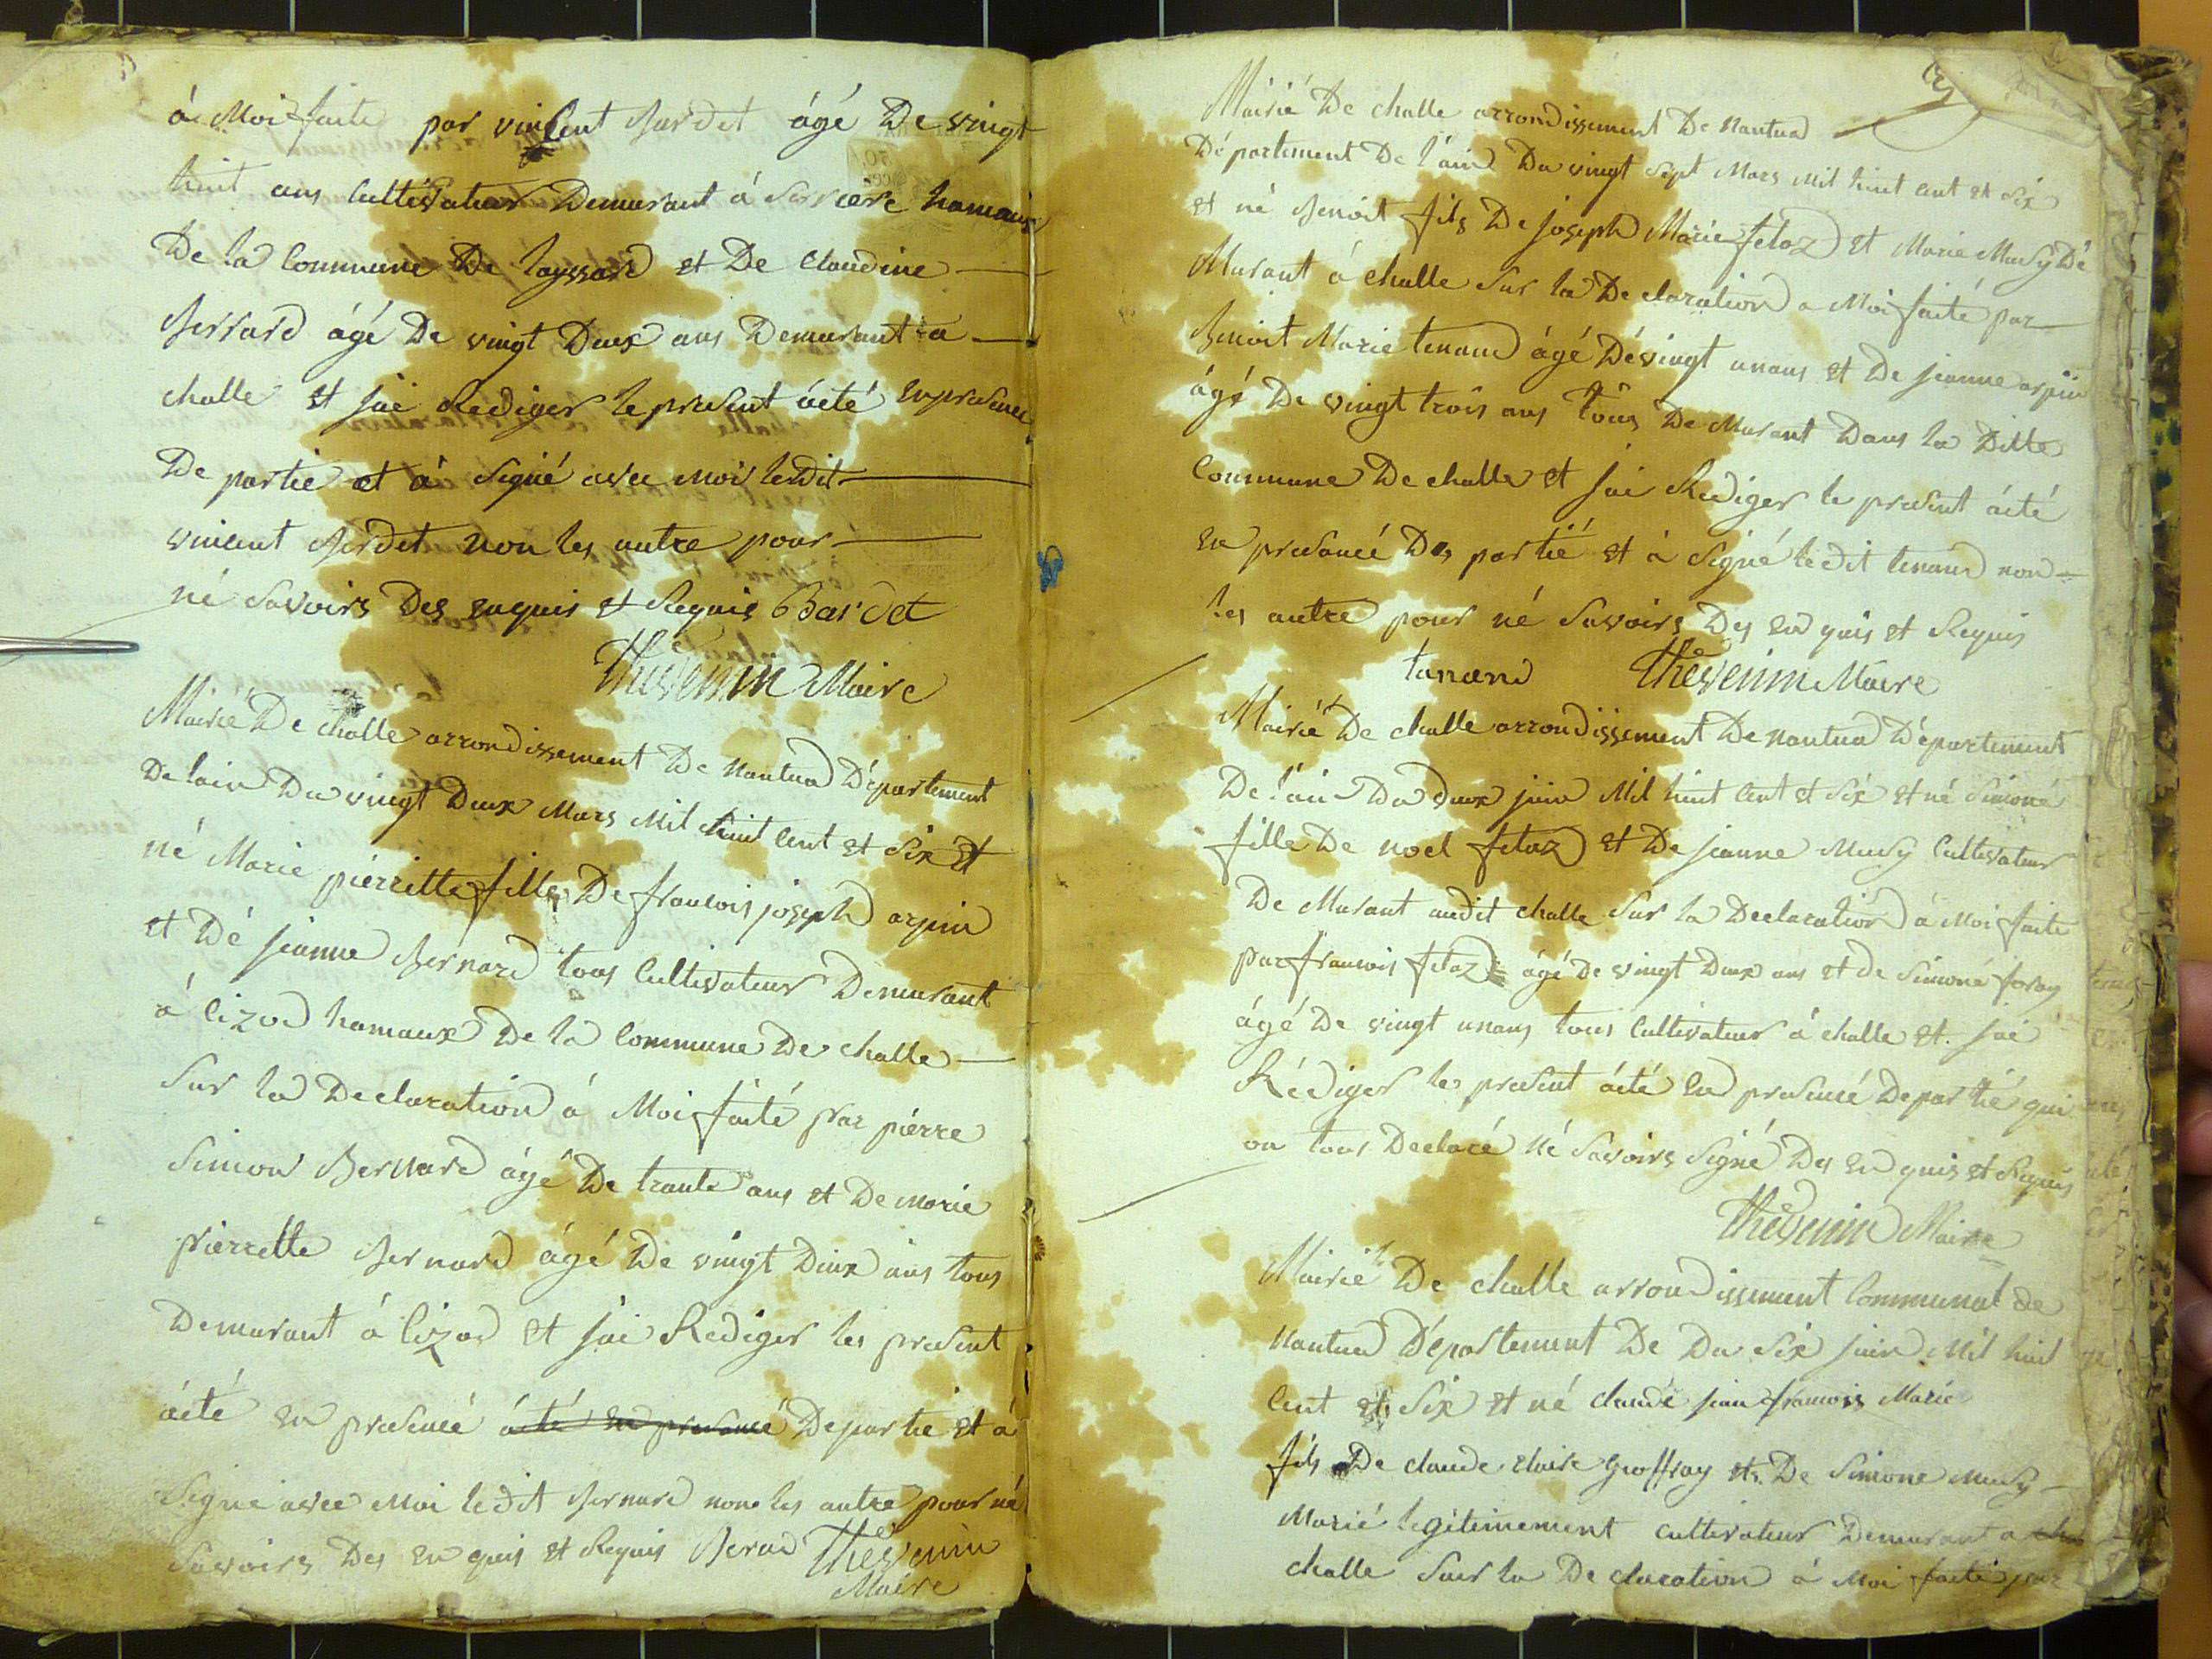 á Moi faite par vincent Bardet ágé De vingt
huit ans Cultivateur Demurant á Serriere hamaux
De la Commune De layssard et De Claudine
Berrard ágé De vingt Deux ans Demurant a
challe et jai Rediger le present ácté en presence
De partie et á Signé avec moi ledit
vincent Berdet non les autre pour
né Savoirs Des enquis et Requis Bardet
Thevenin Maire
Mairié De challe arrondissement De Nantua Département
De lain Du vingt Deux Mars Mil huit Cent et Six Et
né Marie pierrette fille De francois joseph arpin
et Dé jeanne Bernard tous Cultivateur Demurant
á Cizod hamaux De la Commune De challe
Sur la Declaration á Moi faité par piérre
Simon Bernard ágé De trante ans et De Marie
Pierrette Bernard ágé De vingt Deux ans tous
Demurant á Cizod et jai Rediger les present
ácté en presencé ácté en presancé De partie et á
Signé avec Moi ledit Bernard non les autre pour né
Savoirs Des enquis et Requis Berad Thevenin
Maire
Mairié De challe arrondissement De Nantua
Département De l'ain Du vingt Sept Mars Mil huit Cent et Six
et né Benoit fils De joseph Marie fetaz et Marie Musy Dé
Murant á challe Sur la Declaration a Moi faité par
Benoit Marie tenand ágé Dé vingt un ans et De jeanne arpin
ágé De vingt trois ans tous De Murant Dans la Ditte
Commune De challe et jai Rediger le present ácté
en presancé Des partié et á Signé ledit tenand non
les autre pour né Savoirs Des en quis et Requis
tanand Thevenin Maire
Mairié De challe arrondissement De Nantua Département
De l'ain Du deux juin Mil huit Cent et Six et né Simoné
fille De noel fetaz et De jeanne Musy Cultivateur
De Murant audit challe Sur la Declaration á Moi faite
par francois fetaz ágé De vingt Deux ans et de Simoné foray
ágé De vingt un ans tous Cultivateur á challe et jai
Rédiger le present ácté en presencé De partié qui
on tous Declaré né Savoirs Signé Des en quis et Requis
Thevenin Maire
Mairié De challe arrondissement Communal de
Nantua Département De Du Six juin Mil huit
Cent et Six et né claude jean francois Marie
fils De claude claire Groffray et De Simone Musy
Marié legitimement Cultivateur Demurant a
challe Sur la Declaration á Moi faité par